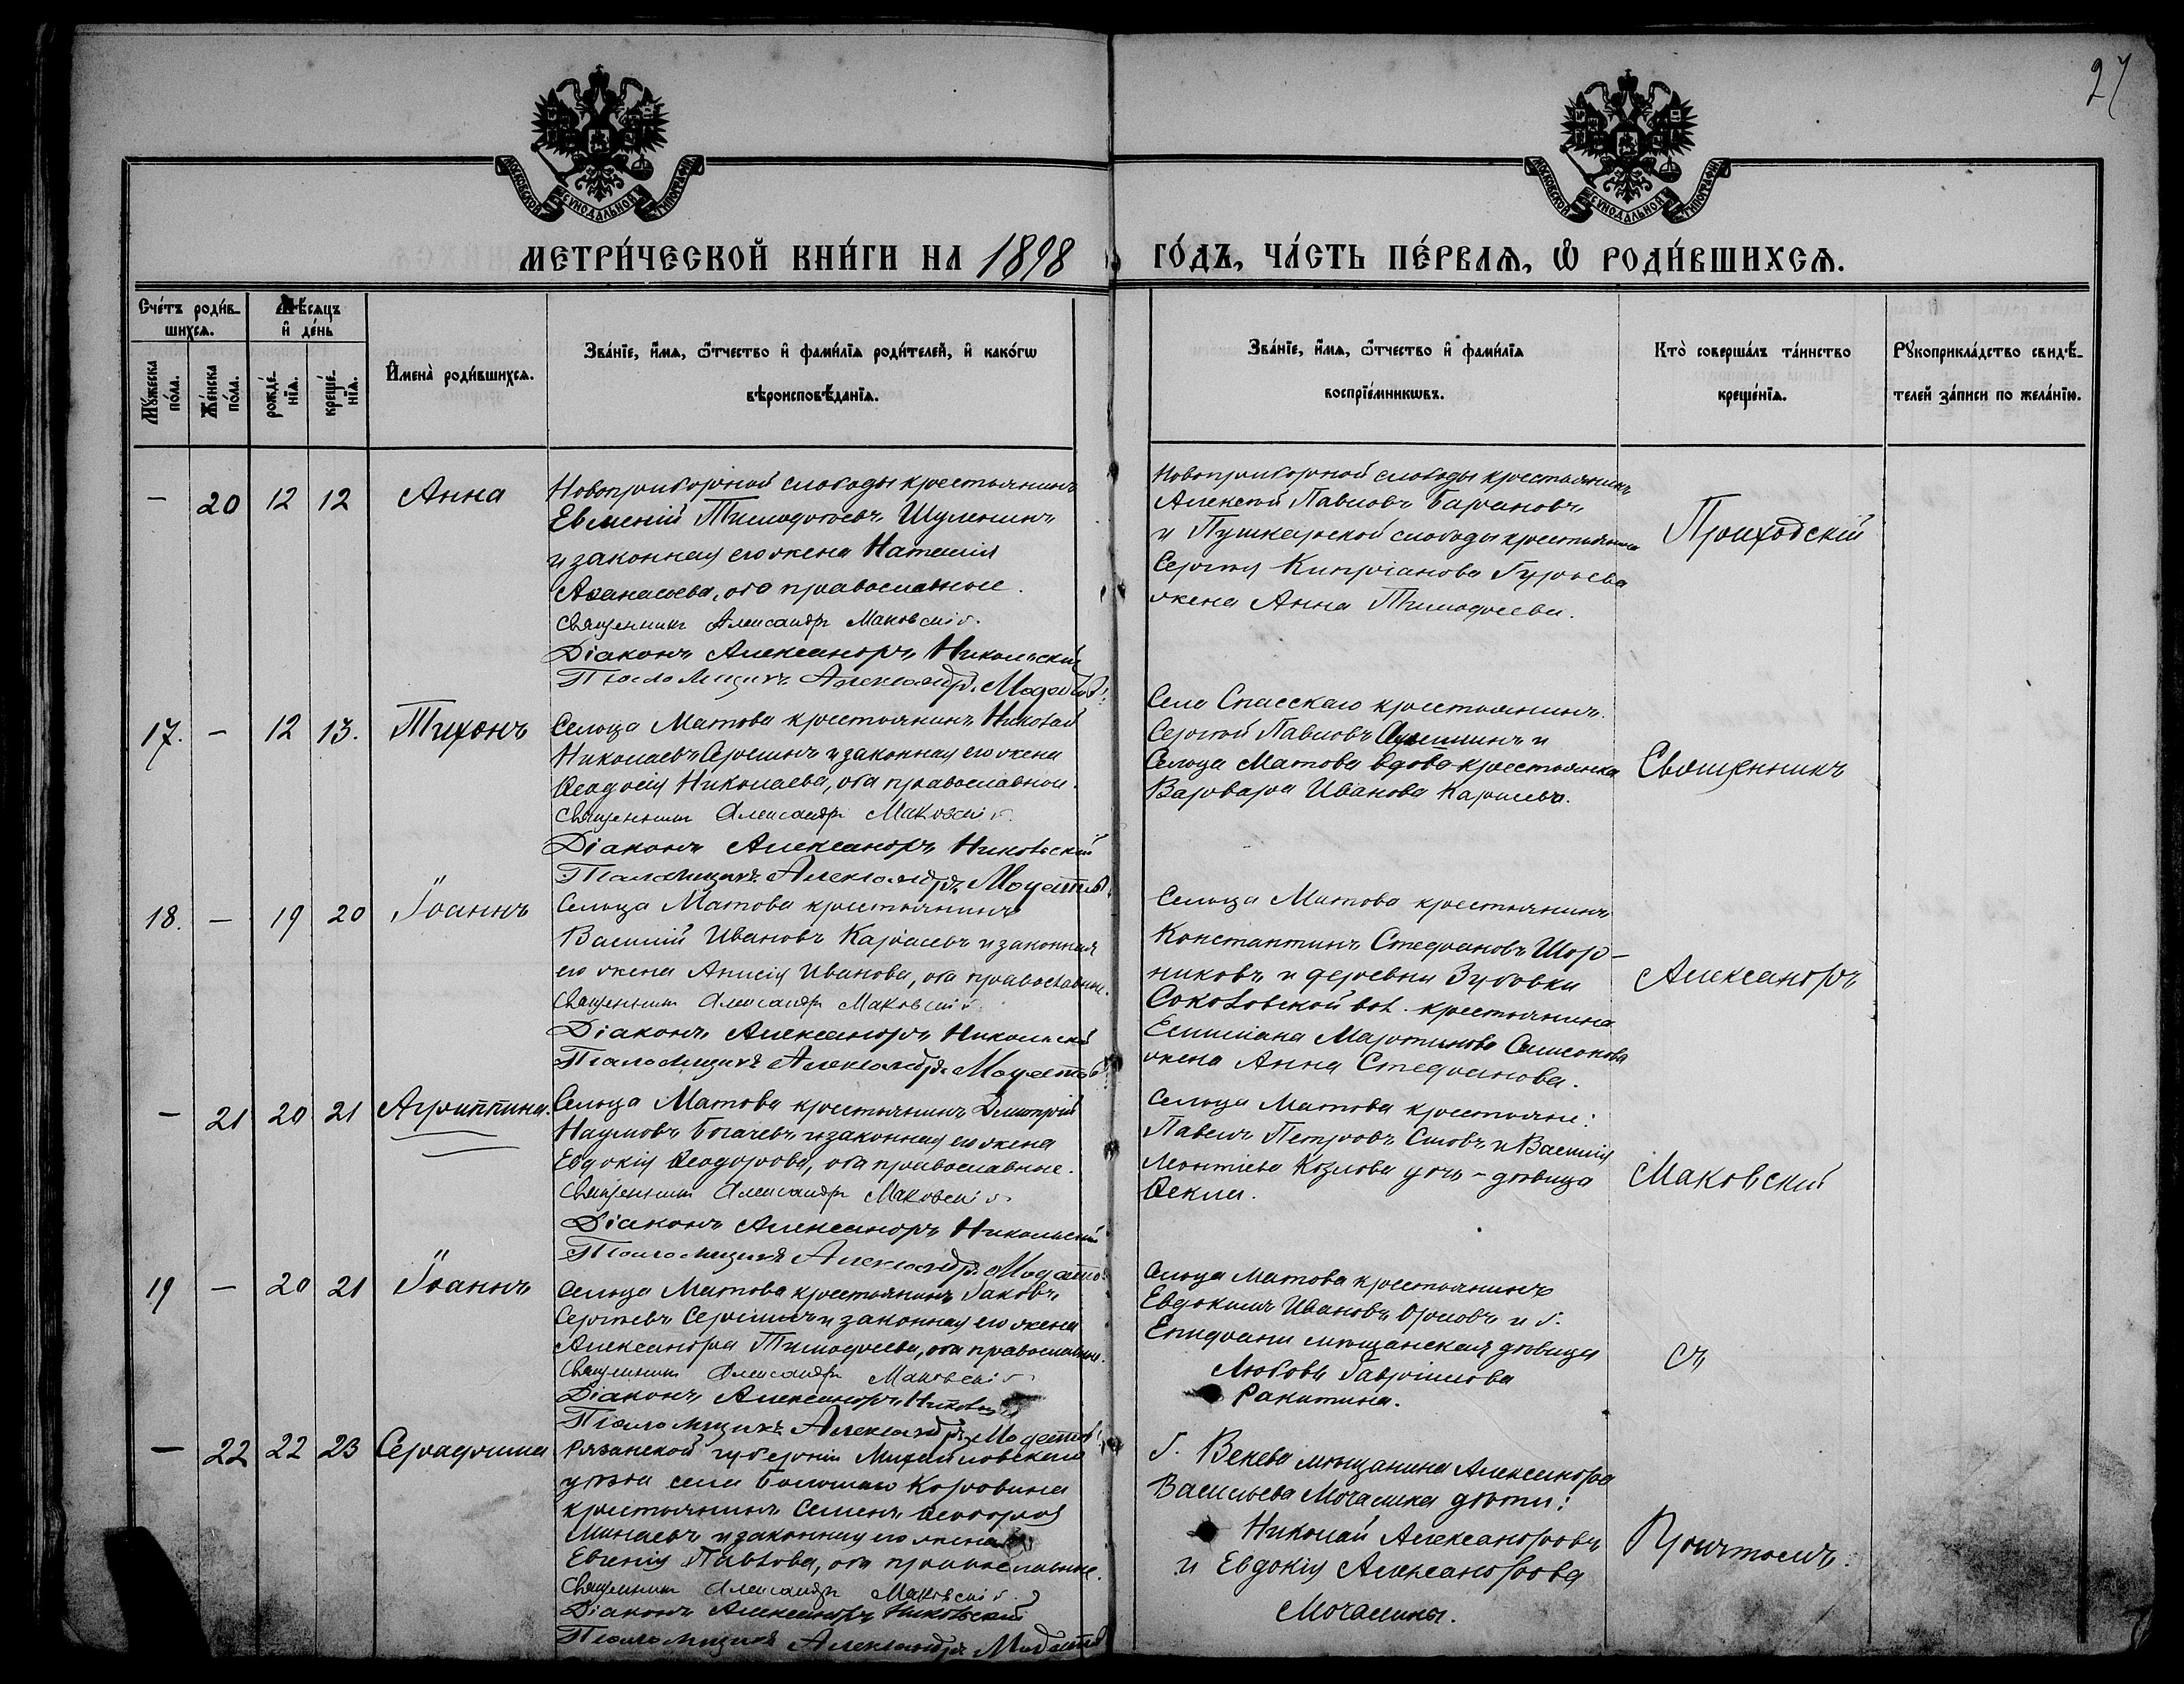 27
МОСКОВСКОЙ СѴНОДАЛЬНОЙ ТИПОГРАФІИ
МОСКОВСКОЙ СѴНОДАЛЬНОЙ ТИПОГРАФІИ
МЕТРИ́ЧЕСКОЙ КНИ́ГИ НА 1898 ГО́ДЪ, ЧА́СТЬ ПЕ́РВАѦ, Ѽ РОДИ́ВШИХСѦ.
Сче́тъ роди́в-
шихсѧ.
Мꙋ́жеска
по́ла.
Же́нска
по́ла.
Мѣ́сѧцъ
и҆ де́нь
рожде́-
нїѧ.
креще́-
нїѧ.
И҆мена̀ роди́вшихсѧ.
Зва́нїе, и҆́мѧ, ѻ҆́тчество и҆ фами́лїѧ роди́телей, и҆ како́гѡ
вѣроисповѣ́данїѧ.
Зва́нїе, и҆́мѧ, ѻ҆́тчество и҆ фами́лїѧ
воспрїе́мникѡвъ.
Кто̀ соверша́лъ та́инство
креще́нїѧ.
Рꙋкоприкла́дство свидѣ́-
телей за́писи по жела́нїю.
— 20 12 12 Анна
Новоприборной слободы крестьянинъ
Евменій Тимофеевъ Шуленинъ
и законная его жена Наталія
Аѳанасьева, оба православные.
Священникъ Александръ Маковскій.
Діаконъ Александръ Никольскій
Псаломщикъ Александръ Модестовъ
Новоприборной слободы крестьянинъ
Алексей Павловъ Барановъ
и Пушкарской слободы крестьянина
Сергея Кипріанова Гурьева
жена Анна Тимофеева.
Приходскій
17. — 12 13. Тихонъ
Сельца Матова крестьянинъ Николай
Николаевъ Серегинъ и законная его жена
Ѳеодосія Николаева, оба православные.
Священникъ Александръ Маковскій.
Діаконъ Александръ Никольскій
Псаломщикъ Александръ Модестовъ
Села Спасскаго крестьянинъ
Сергей Павловъ и
Сельца Матова вдова крестьянка
Варвара Иванова Карасева.
Священникъ
18. — 19 20 Іоаннъ
Сельца Матова крестьянинъ
Василій Ивановъ Карасевъ и законная
его жена Анисія Иванова, оба православные.
Священникъ Александръ Маковскій.
Діаконъ Александръ Никольскій
Псаломщикъ Александръ Модестовъ
Сельца Матова крестьянинъ
Константинъ Стефановъ Шор-
никовъ и деревни Зубовки
Соколовской вол. крестьянина
Емиліана Мартинова Самсонова
жена Анна Стефанова.
Александръ
— 21 20 21 Агриппина.
Сельца Матова крестьянинъ Димитрій
Наумовъ Богачевъ и законная его жена
Евдокія Ѳеодорова, оба православные.
Священникъ Александръ Маковскій.
Діаконъ Александръ Никольскій
Псаломщикъ Александръ Модестовъ
Сельца Матова крестьяне:
Павелъ Петровъ и Василія
Леонтіева Козлова дочь — дѣвица
Ѳекла.
Маковскій
19 — 20 21 Іоаннъ
Сельца Матова крестьянинъ Іаковъ
Сергеевъ Серегинъ и законная его жена
Александра Тимофеева, оба православные.
Священникъ Александръ Маковскій
Діаконъ Александръ
Псаломщикъ Александръ Модестовъ
Сельца Матова крестьянинъ
Евдокимъ Ивановъ Орловъ и г.
Епифани мѣщанская дѣвица
Любовь Гавриилова
Ракитина.
съ
— 22 22 23 Серафима
Рязанской губерніи Михайловскаго
уѣзда села Большаго Коровина
крестьянинъ Семенъ Ѳеодоровъ
Минаевъ и законная его жена
Евгенія Павлова, оба православные.
Священникъ Александръ Маковскій.
Діаконъ Александръ Никольскій
Псаломщикъ Александръ Модестовъ
г. Венева мѣщанина Александра
Васильева Мочалина дѣти:
Николай Александровъ
и Евдокія Александрова
Мочалины.
Причтомъ.